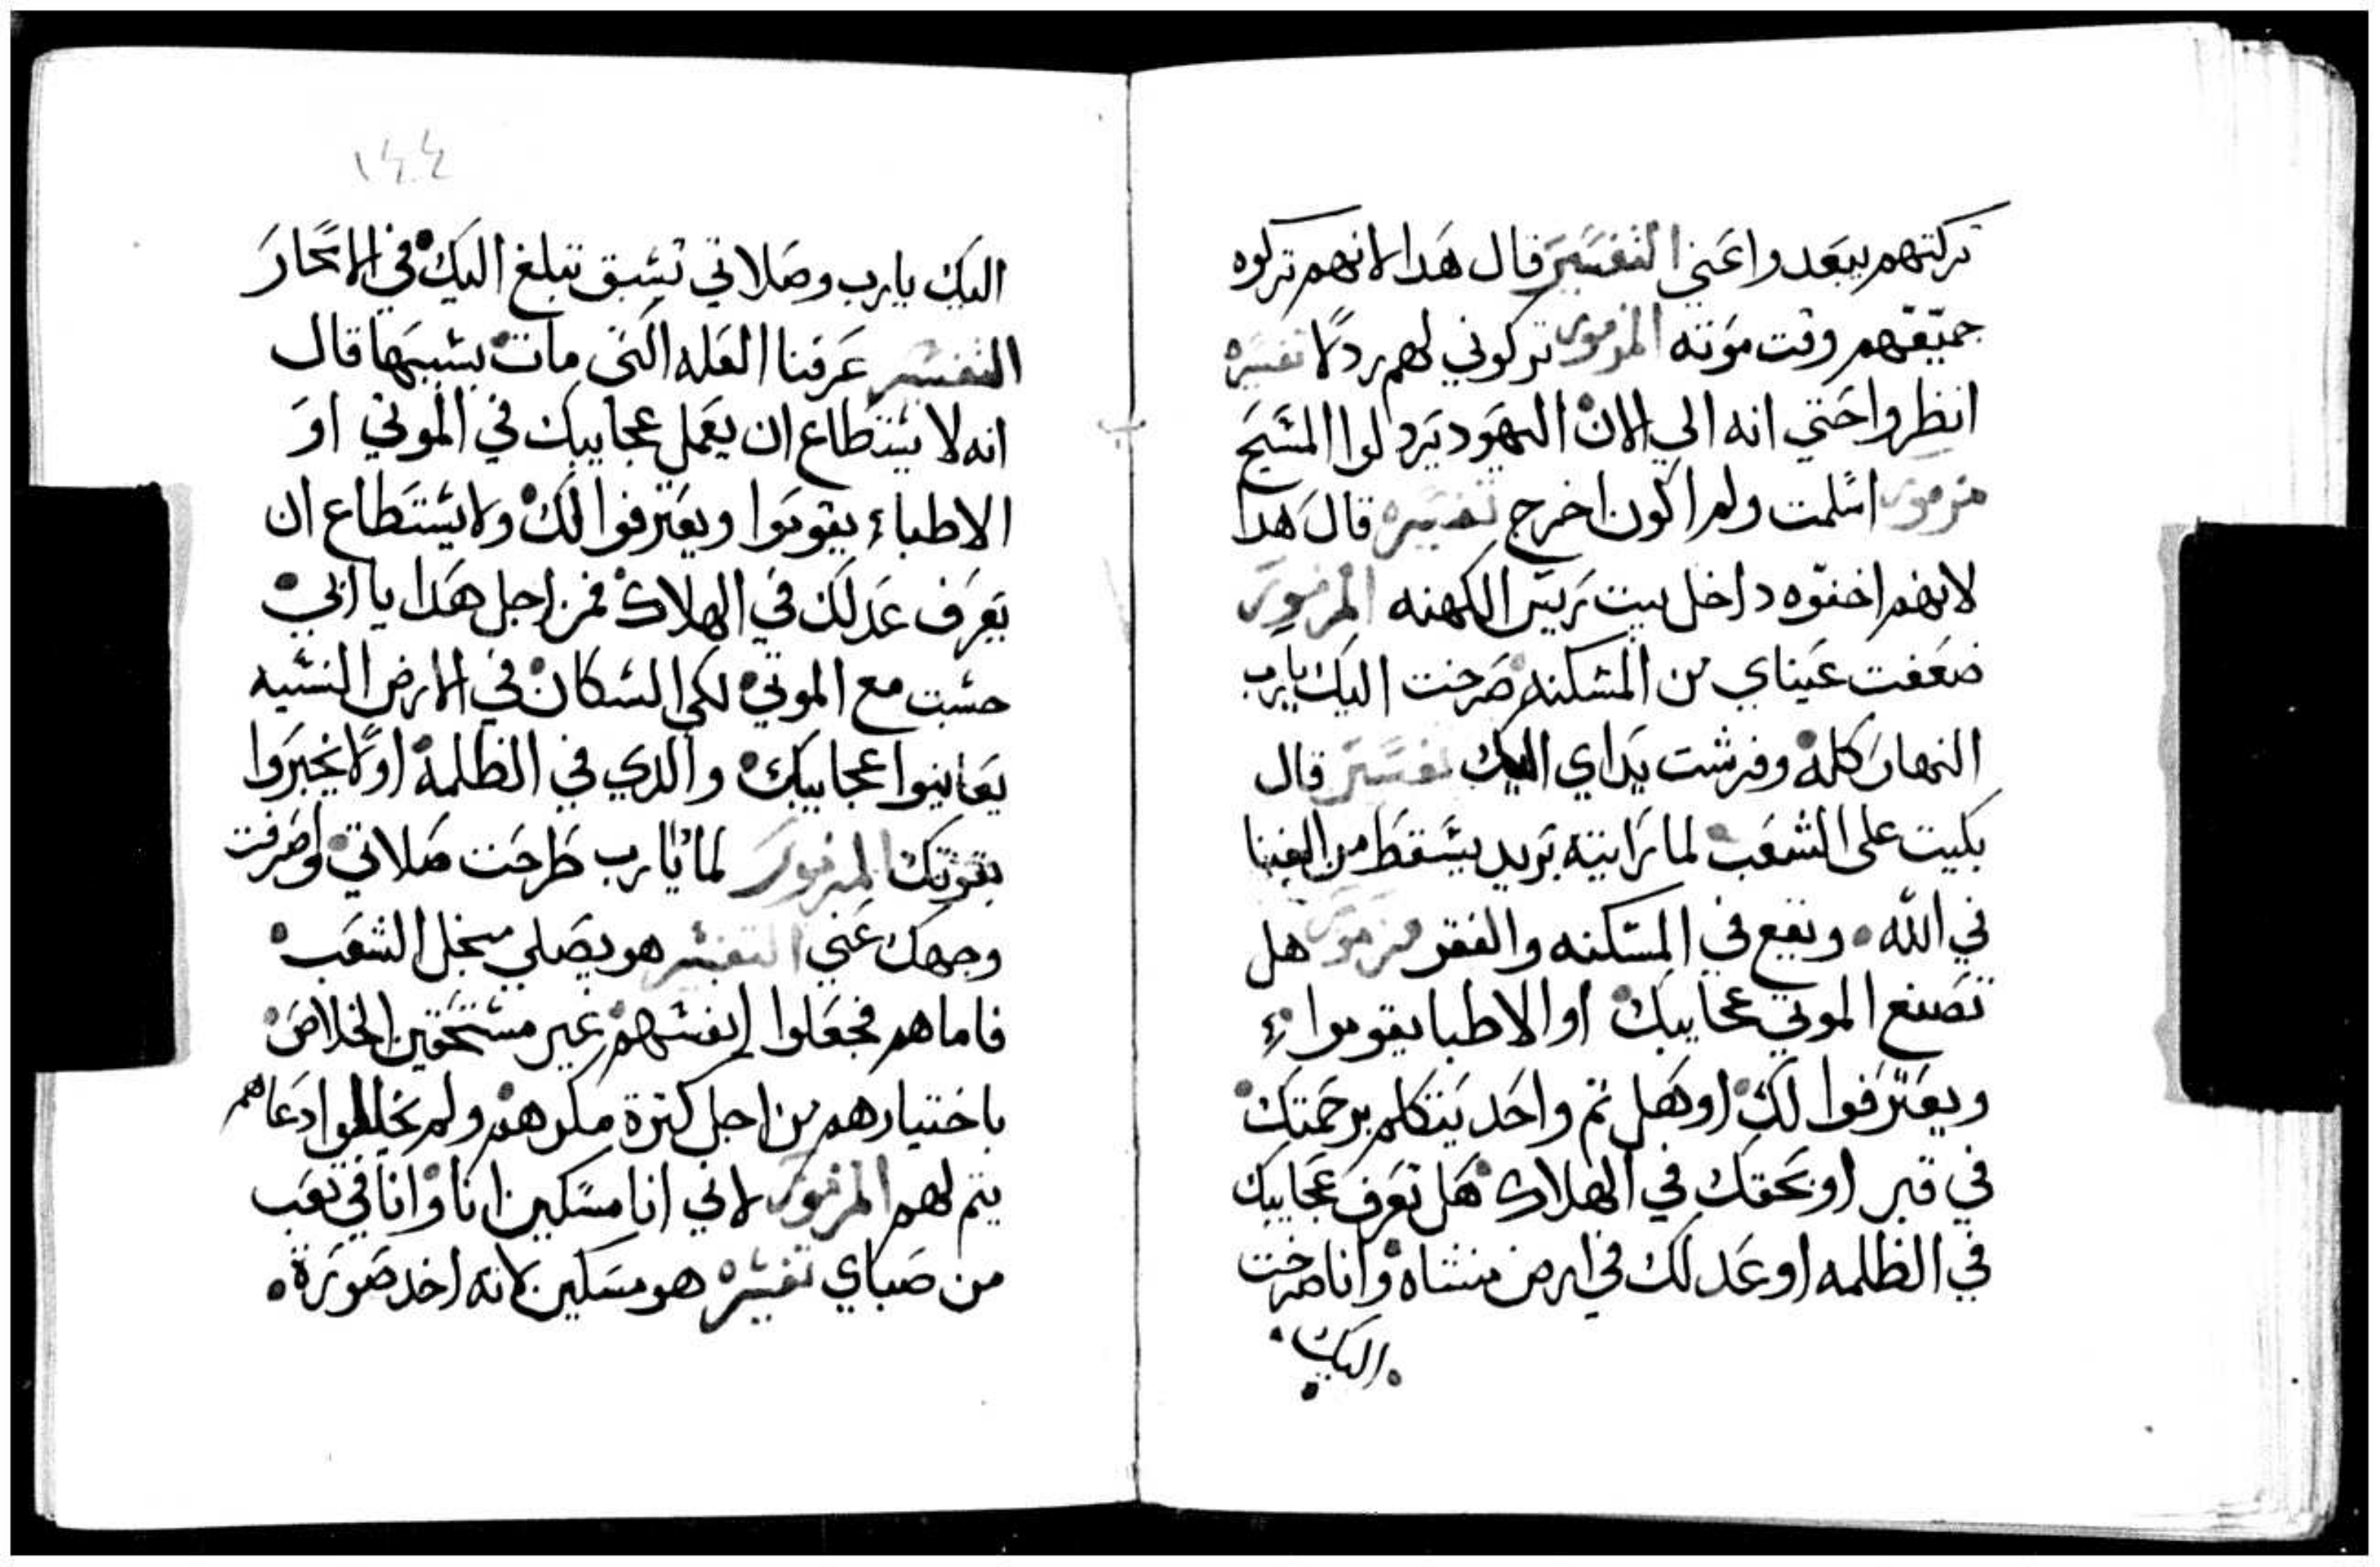 تركتهم يبعدوا عني التفسير قال هدا لانهم تركوه
جميعهم وقت موته المزمور تركوني لهم ردلا تفسيره
انظروا حتي انه الي الان اليهود يردلوا المسيح
مزمور اسلمت ولم اكون اخرج تفسيره قال هدا
لانهم اخفوه داخل بيت ريس الكهنه المزمور
ضعفت عيناي من المسكنه صرخت اليك يارب
النهار كله وفرشت يداي اليك تفسير قال
بكيت على الشعب لما رايته يريد يسقط من الغنا
في الله ويقع في المسكنه والفقر مزمور هل
تصنع الموتي عجاييبك او الاطبا يقوموا
ويعترفوا لك او هل تم واحد يتكلم برحمتك
في قبر او بحقك في الهلاك هل تعرف عجاييبك
في الظلمه او عدلك في ارض منشاه وانا صرخت
اليك
١٤٤
اليك يارب وصلاتي تسبق تبلغ اليك في الاسحار
التفسير عرفنا العله التي مات بسببها قال
انه لا يستطاع ان يعمل عجاييبك في الموتي او
الاطباء يقوموا ويعترفوا لك ولا يستطاع ان
يعرف عدلك في الهلاك فمن اجل هدا يا ابي
حسبت مع الموتي لكي السكان في الارض النسيه
يعاينوا عجاييبك والدي في الظلمه اولا يخبروا
بقوتك المزمور لما يارب طرحت صلاتي وصرفت
وجهك عني التفسير هو يصلي من اجل الشعب
فاما هم فجعلوا انفسهم غير مستحقين الخلاص
باختيارهم من اجل كترة مكرهم ولم يخلوا دعاهم
يتم لهم المزمور لاني انا مسكين انا وانا في تعب
من صباي تفسيره هو مسكين لانه اخد صورة